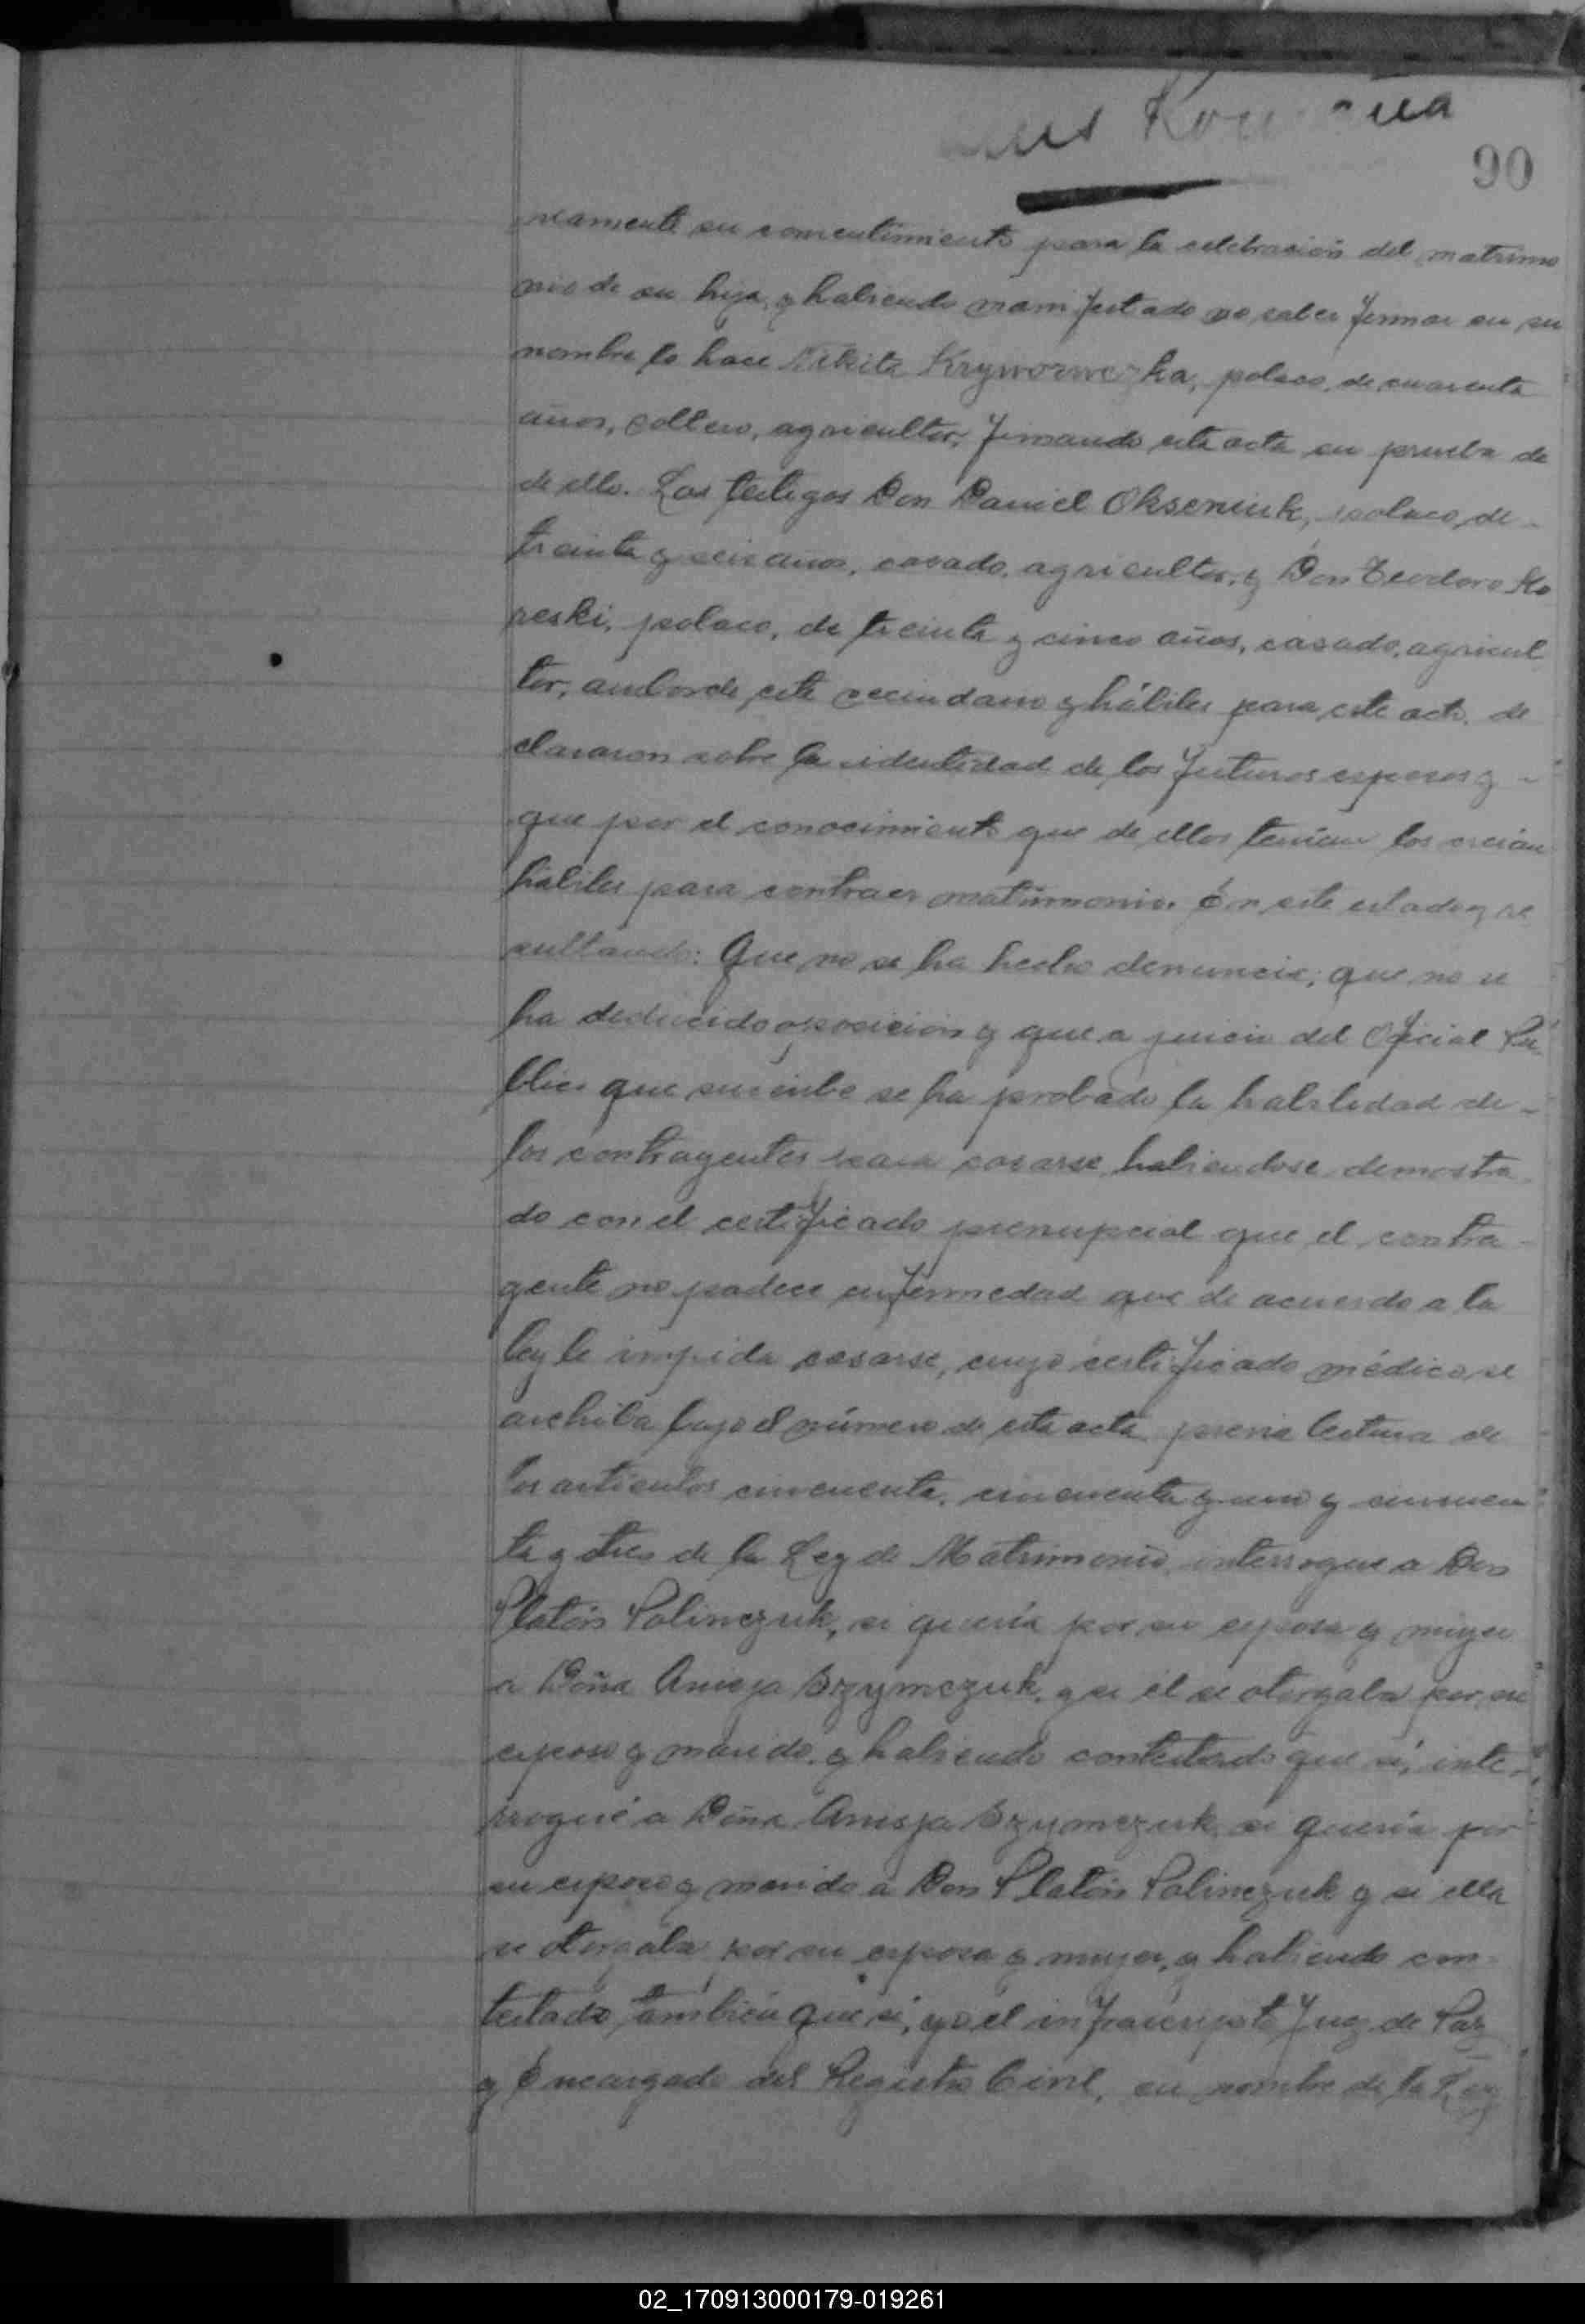 90
viamente su consentimiento para la celebración del matrimo
nio de su hija, y habiendo manifestado no saber firmar en su
nombre lo hace Nikita Kryworuczka, polaco, de cuarenta
años, soltero, agricultor, firmando esta acta en prueba de
de ello. Los testigos Don Daniel Okseniuk, polaco, de
treinta y seis años, casado, agricultor, y Don Teodoro Ko
reski, polaco, de treinta y cinco años, casado, agricul
tor, ambos de este vecindario y hábiles para este acto, de
clararon sobre la identidad de los futuros esposos y
que por el conocimiento que de ellos tenían los creían
hábiles para contraer matrimonio. En este estado y re
sultando: Que no se ha hecho denuncia; que no se
ha deducido oposición y que a juicio del Oficial Pú
blico que suscribe se ha probado la habilidad de
los contrayentes para casarse, habiendose demostra
do con el certificado prenupcial que el contra
yente no padece enfermedad que de acuerdo a la
ley le impida casarse, cuyo certificado médico se
archiba bajo el número de esta acta, previa lectura de
los artículos cincuenta, cincuenta y uno y cincuen
ta y tres de la Ley de Matrimonio, interrogue a Don
Platón Polinczuk, si quería por su esposa y mujer
a Doña Anisja Szymczuk, y si él se otorgaba por su
esposo y marido, y habiendo contestado que sí, inte
rrogué a Doña Anisja Szymczuk, si quería por
su esposo y marido a Don Platón Polinczuk y si ella
se otorgaba por su esposa y mujer, y habiendo con
testado también que sí, yo el infrascripto Juez de Paz
y Encargado del Registro Civil, en nombre de la Ley
02_170913000179-019261